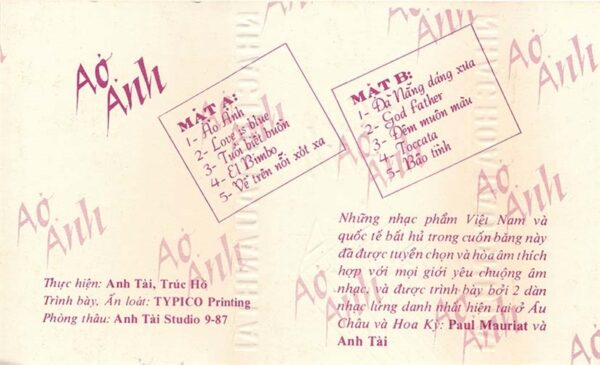 Ảo Ảnh
MẶT A:
1- Ảo Ảnh
2- Love is blue
3- Tuổi biết buồn
4- El Bimbo
5- Về trên nỗi xót xa
MẶT B:
1- Đà Nẵng dáng xưa
2- God father
3- Đêm muôn màu
4- Toccata
5- Bão tình
Thực hiện: Anh Tài, Trúc Hồ
Trình bày, Ấn loát: TYPICO Printing
Phòng thâu: Anh Tài Studio 9-87
Những nhạc phẩm Việt Nam và
quốc tế bất hủ trong cuốn băng này
đã được tuyển chọn và hòa âm thích
hợp với mọi giới yêu chuộng âm
nhạc, và được trình bày bởi 2 dàn
nhạc lừng danh nhất hiện tại ở Âu
Châu và Hoa Kỳ: Paul Mauriat và
Anh Tài
Ảo Ảnh
Ảo Ảnh
Ảo Ảnh
Ảo Ảnh